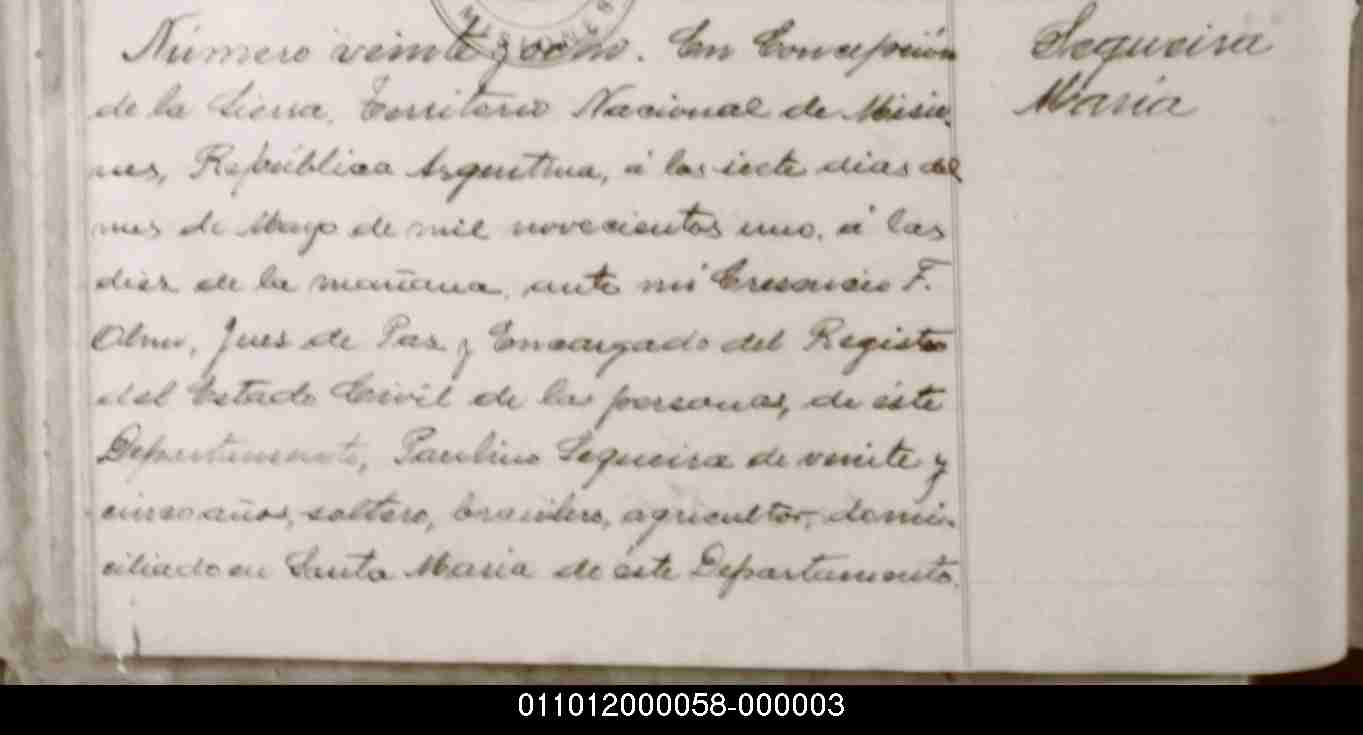 MISIONES
Número veinte y ocho. En Concepción
de la Sierra, Territorio Nacional de Misio-
nes, República Argentina, á los siete dias del
mes de Mayo de mil novecientos uno, á las
diez de la mañana, ante mi Cresencio F.
Juez de Paz y Encargado del Registro
del Estado Civil de las personas, de éste
Departamento, Paulino Sequeira de veinte y
cinco años, soltero, brasilero, agricultor, domi-
ciliado en Santa Maria de éste Departamento.
Sequeira
María
011012000058-000003